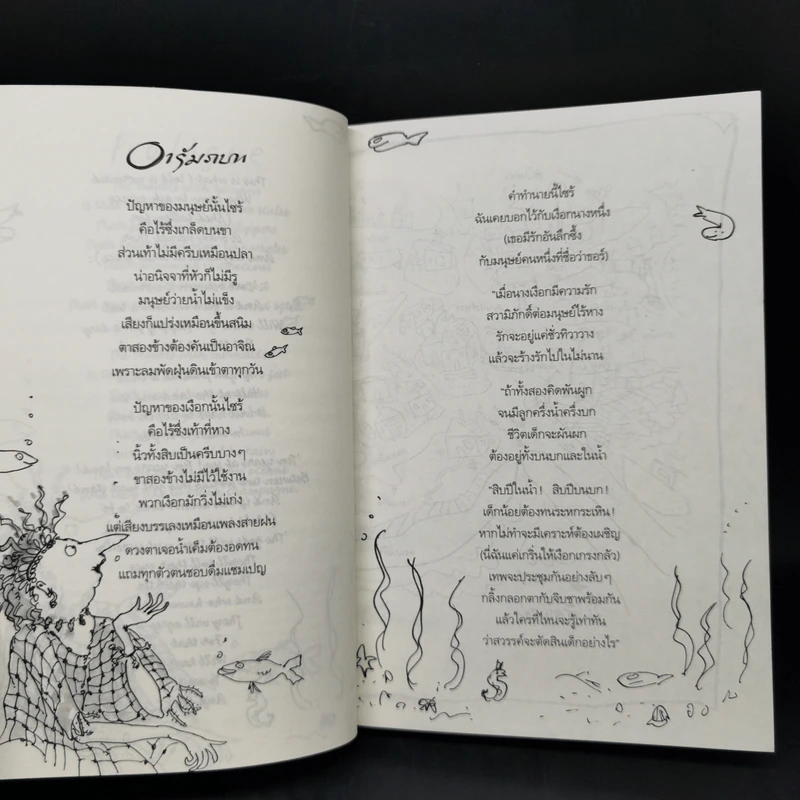 อารัมภบท
ปัญหาของมนุษย์นั้นไซร้
คือไร้ซึ่งเกล็ดบนขา
ส่วนเท้าไม่มีครีบเหมือนปลา
น่าอนิจจาที่หัวก็ไม่มีรู
มนุษย์ว่ายน้ำไม่แข็ง
เสียงก็แปร่งเหมือนขึ้นสนิม
ตาสองข้างต้องคันเป็นอาจิณ
เพราะลมพัดฝุ่นดินเข้าตาทุกวัน
ปัญหาของเงือกนั้นไซร้
คือไร้ซึ่งเท้าที่หาง
นิ้วทั้งสิบเป็นครีบบางๆ
ขาสองข้างไม่มีไว้ใช้งาน
พวกเงือกมักวิ่งไม่เก่ง
แต่เสียงบรรเลงเหมือนเพลงสายฝน
ดวงตาเจอน้ำเค็มต้องอดทน
แถมทุกตัวตนชอบดื่มแชมเปญ
คำทำนายนี้ไซร้
ฉันเคยบอกไว้กับเงือกนางหนึ่ง
(เธอมีรักอันลึกซึ้ง
กับมนุษย์คนหนึ่งที่ชื่อว่าธอร์)
"เมื่อนางเงือกมีความรัก
สวามิภักดิ์ต่อมนุษย์ไร้หาง
รักจะอยู่แค่ชั่วทิวาวาง
แล้วจะร้างรักไปในไม่นาน
"ถ้าทั้งสองคิดพันผูก
จนมีลูกครึ่งน้ำครึ่งบก
ชีวิตเด็กจะผันผก
ต้องอยู่ทั้งบนบกและในน้ำ
"สิบปีในน้ำ! สิบปีบนบก!
เด็กน้อยต้องทนระหกระเหิน!
หากไม่ทำจะมีเคราะห์ต้องเผชิญ
(นี่ฉันแค่เกริ่นให้เงือกเกรงกลัว)
เทพจะประชุมกันอย่างลับๆ
กลิ้งกลอกตากับจิบชาพร้อมกัน
แล้วใครที่ไหนจะรู้เท่าทัน
ว่าสวรรค์จะตัดสินเด็กอย่างไร"